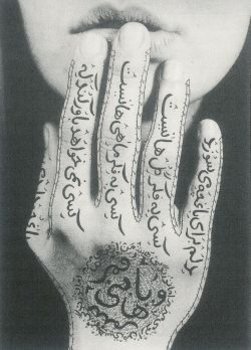 دلم برای باغچه می سوزد
کسی به فکر گل ها نیست
کسی به فکر ماهی ها نیست
کسی نمی خواهد باور کند که